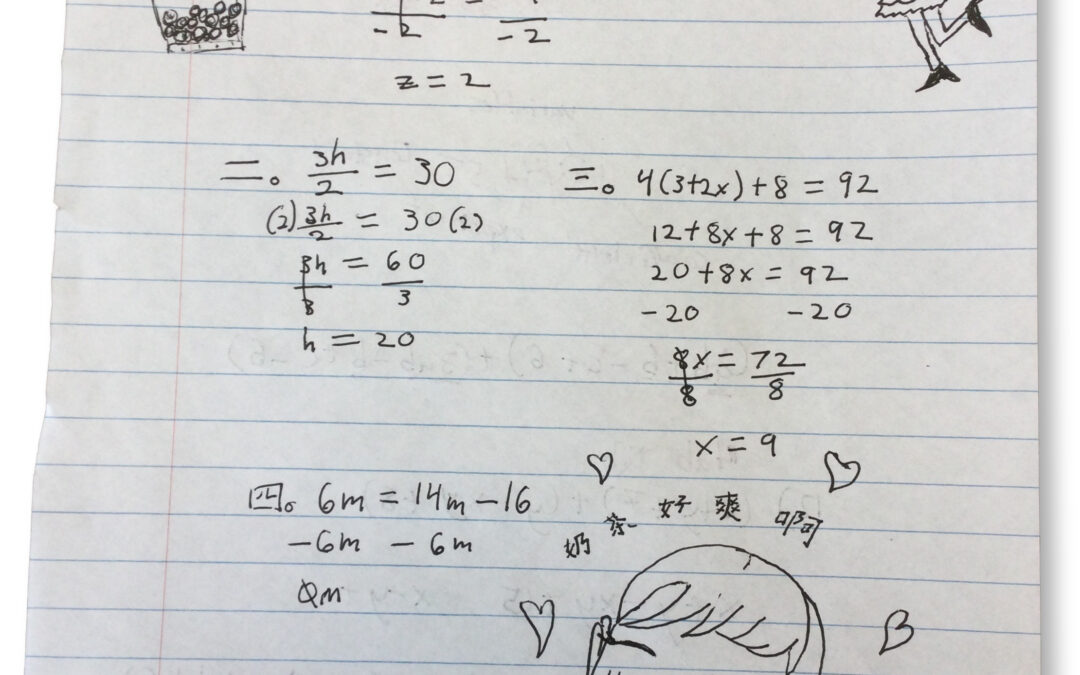 -2 -2
z = 2
二。 3h/2 = 30
(2) 3h/2 = 30(2)
3h/3 = 60/3
h = 20
三。 4(3+2x)+8 = 92
12+8x+8 = 92
20+8x = 92
-20 -20
8x/8 = 72/8
x = 9
四。 6m = 14m-16
-6m -6m
0m
奶 茶 好 爽 啊